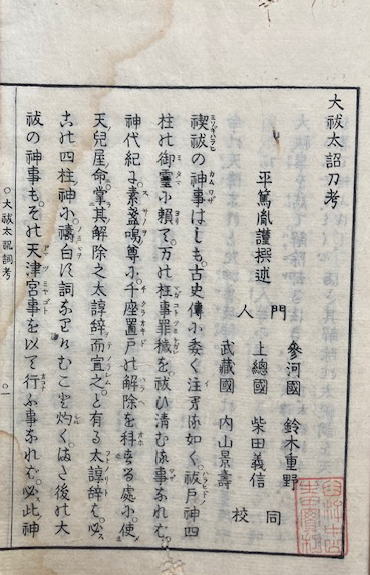 大祓太詔刀考
平篤胤謹撰述
門人
參河國 鈴木重野
上總國 柴田義信
武藏國 内山景壽
同校
禊祓の神事はしも。古史傳に委く注る如く。祓戸神四
柱の御靈に頼て。万の枉事罪穢を。祓ひ清むる事なれど。
神代紀に。素盞嗚尊に。千座置戸の解除を科する處に。使
天兒屋命。掌其解除之太諄辭而宣之。と有る太諄辭も。必
四柱神に。禱白せる詞なりけむこと灼く。はた後の大
祓の神事も。その天津宮事を以て行ふ事なれば。必此神
○大祓太詔詞考 ○一